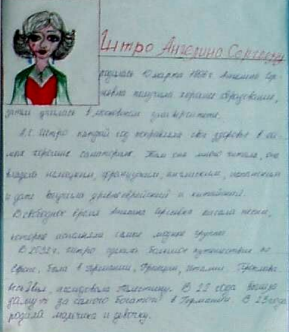 Штро Ангелина Сергеевна
родилась 10 марта
получила хорошее образование,
затем училась в московском университете.
А.С. Штро каждый год поправляла свое здоровье в са-
мых хороших санаториях. Там она много читала, она
владела немецким, французским, английским, испанским
и даже выучила древнееврейский и китайский.
В свободное время Ангелина Сергеевна писала песни,
которые исполняли самые модные группы.
В 2032 г. Штро сделала большое путешествие по
Европе. Была в Германии, Франции, Италии.
В 22 года вышла
замуж за самого богатого в Германии. В 23 года
родила мальчика и девочку.